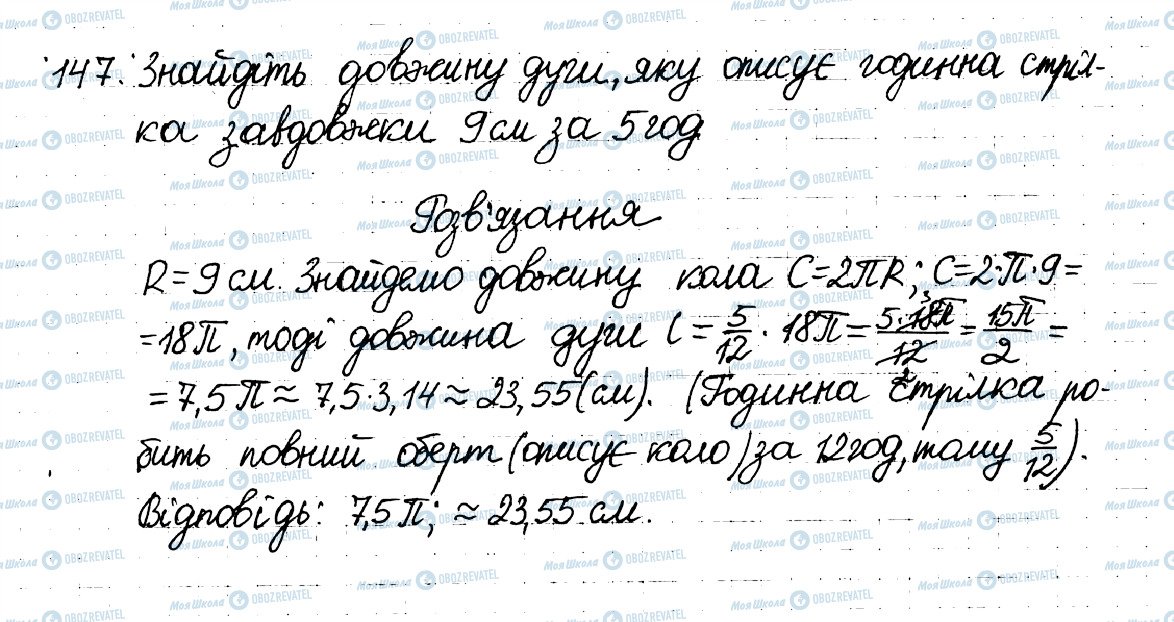 147. Знайдіть довжину дуги, яку описує годинна стріл-
ка завдовжки 9 см за 5 год
Розв'язання
R = 9 см. Знайдемо довжину кола C = 2πR; C = 2·π·9 =
= 18π, тоді довжина дуги l = 5/12 · 18π = 5·18π/12 = 15π/2 =
= 7,5π ≈ 7,5·3,14 ≈ 23,55 (см). (Годинна стрілка ро-
бить повний оберт (описує коло) за 12 год, тому 5/12).
Відповідь: 7,5π; ≈ 23,55 см.